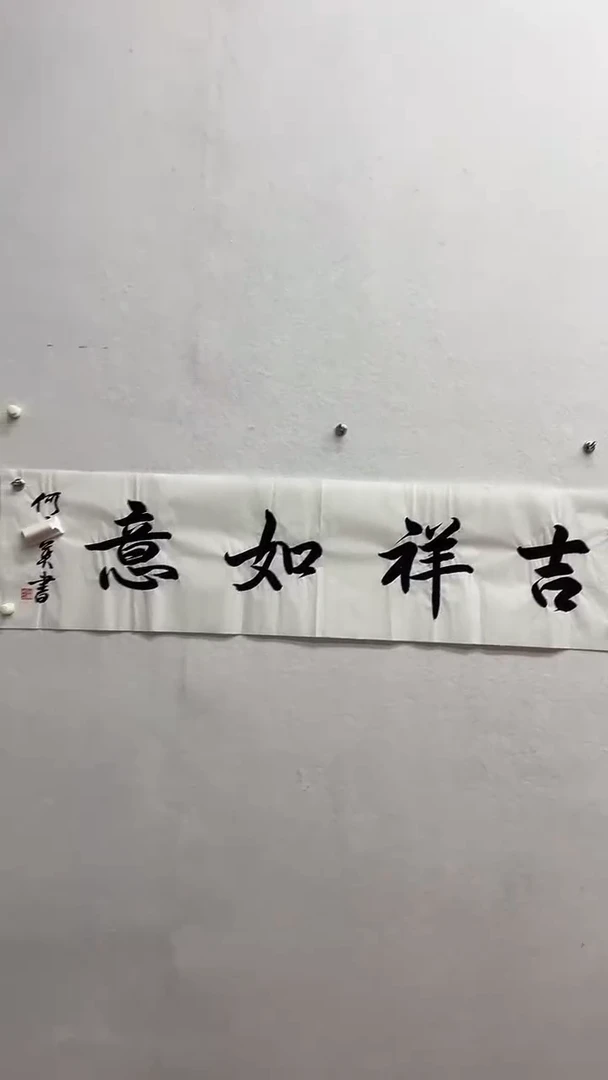 吉祥如意
何 英書